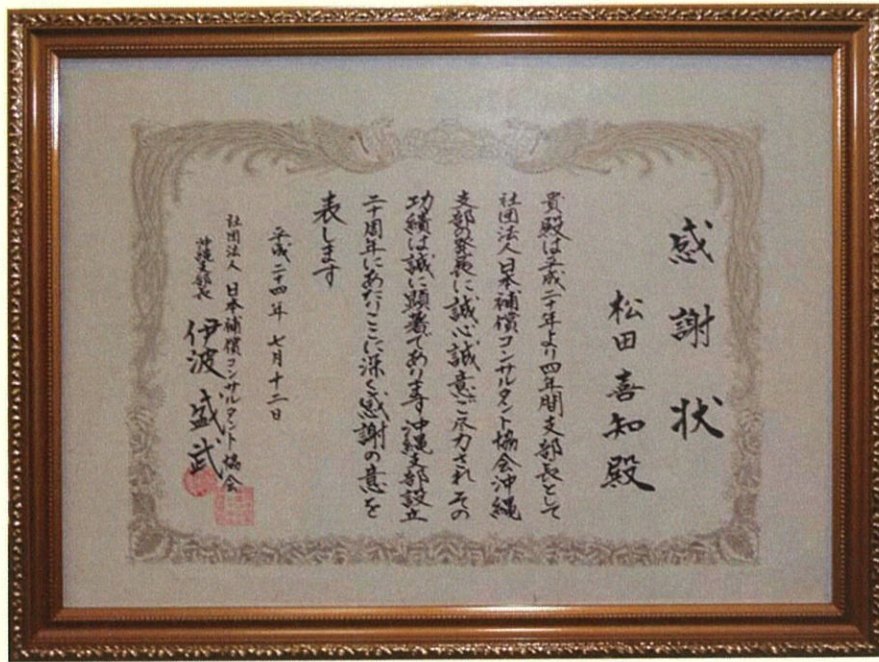 感謝状
松田喜知殿
貴殿は平成二十年より四年間支部長として
社団法人日本補償コンサルタント協会沖縄
支部の発展に誠心誠意ご尽力されその
功績は誠に顕著であります沖縄支部設立
二十周年にあたりここに深く感謝の意を
表します
平成二十四年 七月十二日
社団法人 日本補償コンサルタント協会
沖縄支部長 伊波盛武